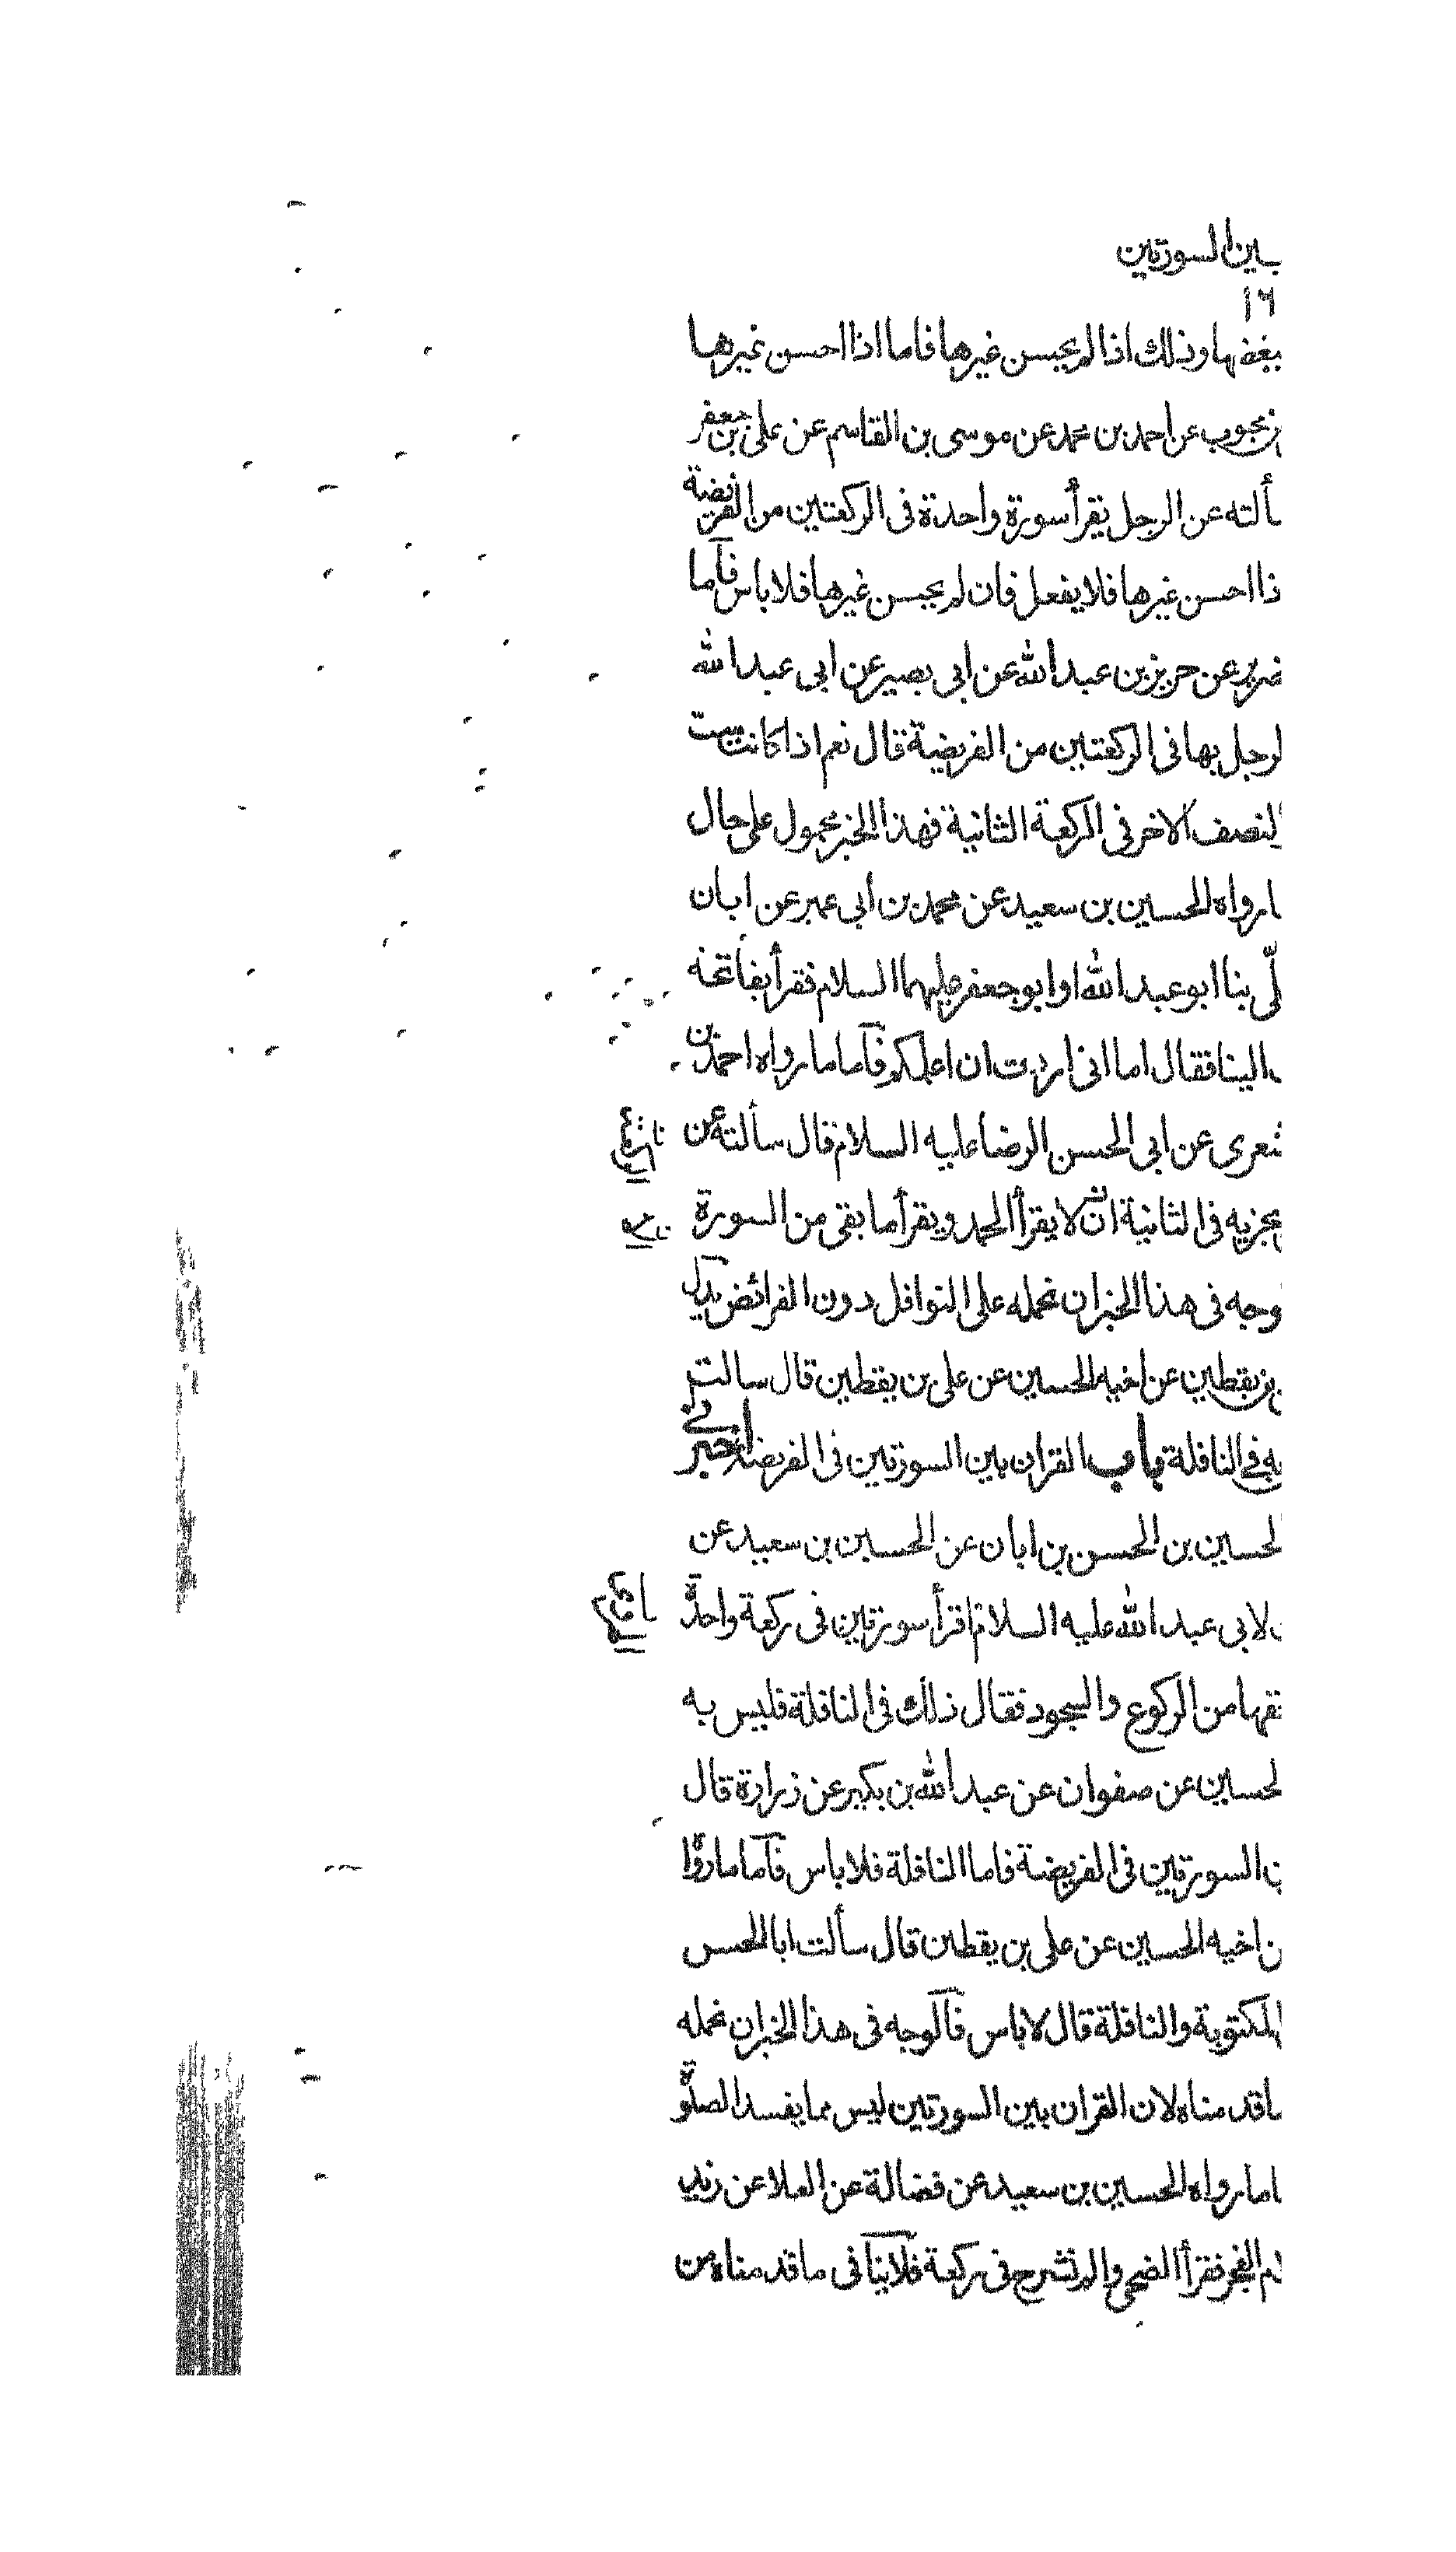 بين السورتين
١٦
ببعضها وذلك اذا لم يحسن غيرها فاما اذا احسن غيرها
بن محبوب عن احمد بن محمد عن موسى بن القاسم عن علي بن جعفر
سألته عن الرجل يقرأ سورة واحدة في الركعتين من الفريضة
ذا احسن غيرها فلا يفعل فان لم يحسن غيرها فلا باس فاما
ضرير عن حريز بن عبد الله عن ابي بصير عن ابي عبد الله
لرجل بها في الركعتين من الفريضة قال نعم اذا كانت ست
لنصف الاخر في الركعة الثانية فهذا الخبر محمول على حال
ما رواه الحسين بن سعيد عن محمد بن ابي عمير عن ابان
لّى بنا ابو عبد الله او ابو جعفر عليهما السلام فقرأ بفاتحه
الينا فقال اما انى اردت ان اعلمكم فاما ما رواه احمد بن
شعرى عن ابي الحسن الرضا عليه السلام قال سألته عن
يجزيه في الثانية ان لا يقرأ الحمد ويقرأ ما بقى من السورة
لوجه في هذا الخبر ان نحمله على النوافل دون الفرائض يدل
بن يقطين عن اخيه الحسين عن على بن يقطين قال سالت
به في النافلة باب القران بين السورتين في الفريضة اخبرني
لحسين بن الحسن بن ابان عن الحسين بن سعيد عن
لابي عبد الله عليه السلام اقرأ سورتين في ركعة واحدة
حقها من الركوع والسجود فقال ذلك في النافلة فليس به
لحسين عن صفوان عن عبد الله بن بكير عن زرارة قال
ن السورتين في الفريضة فاما النافلة فلا باس فاما ما رواه
ن اخيه الحسين عن على بن يقطين قال سألت ابا الحسن
المكتوبة والنافلة قال لا باس فالوجه في هذا الخبر ان نحمله
ما قدمناه لان القران بين السورتين ليس مما يفسد الصلوة
اما ما رواه الحسين بن سعيد عن فضالة عن العلا عن زيد
لام الفجر فقرأ الضحى والم نشرح في ركعة فلا ينافى ما قدمناه من